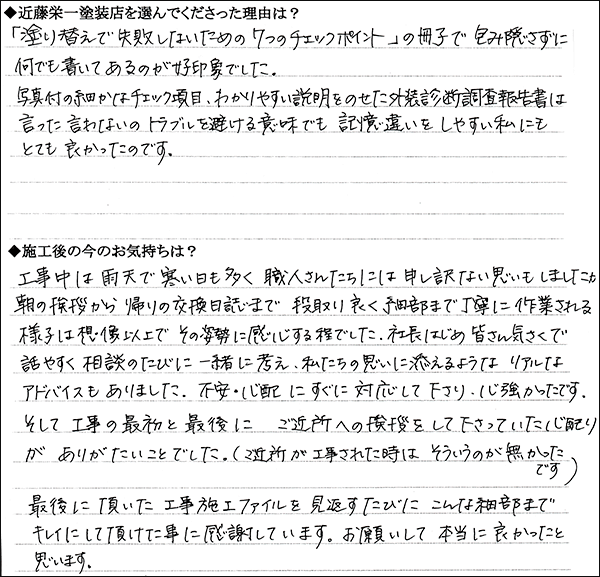 ◆近藤栄一塗装店を選んでくださった理由は？
「塗り替えで失敗しないための7つのチェックポイント」の冊子で包み隠さずに
何でも書いてあるのが好印象でした。
写真付の細かなチェック項目、わかりやすい説明をのせた外装診断調査報告書は
言った言わないのトラブルを避ける意味でも記憶違いをしやすい私にも
とても良かったのです。
◆施工後の今のお気持ちは？
工事中は雨天で寒い日も多く職人さんたちには申し訳ない思いもしましたが
朝の挨拶から帰りの交換日誌まで段取り良く細部まで丁寧に作業される
様子は想像以上でその姿勢に感心する程でした。社長はじめ皆さん気さくで
話やすく相談のたびに一緒に考え、私たちの思いに添えるようなリアルな
アドバイスもありました。不安・心配にすぐに対応して下さり、心強かったです。
そして工事の最初と最後にご近所への挨拶をして下さっていた心配り
がありがたいことでした。(ご近所が工事された時はそういうのが無かった
です)
最後に頂いた工事施工ファイルを見返すたびにこんな細部まで
キレイにして頂けた事に感謝しています。お願いして本当に良かったと
思います。